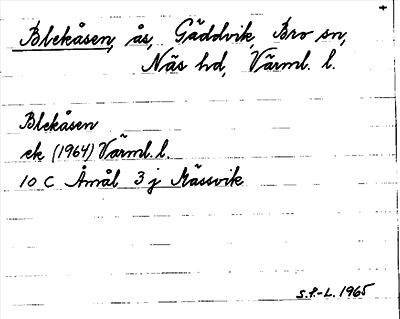 Blekåsen, ås, Gäddvik, Bro sn,
Näs hd, Värml. l.
Blekåsen
ek (1964) Värml. l.
10 C Åmål 3 j Mässvik
S.F.-L. 1965